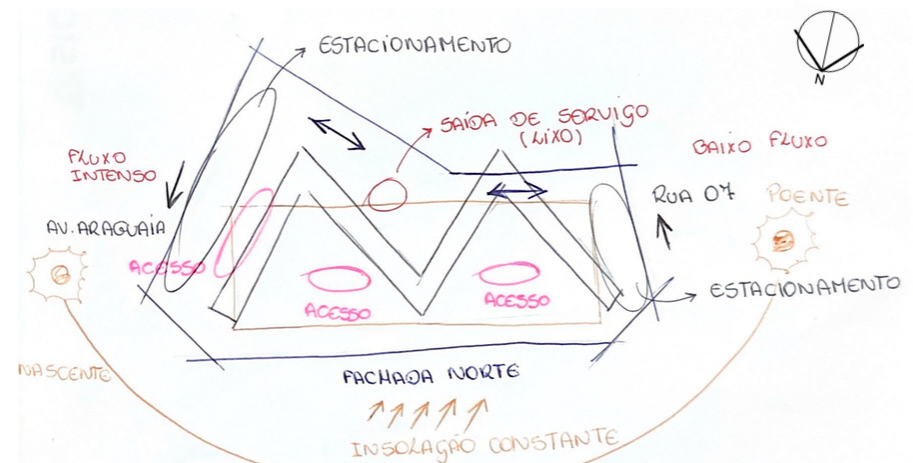 ESTACIONAMENTO
N
SAÍDA DE SERVIÇO
(LIXO)
BAIXO FLUXO
FLUXO
INTENSO
RUA 07
POENTE
AV. ARAGUAIA
ACESSO
ACESSO
ACESSO
ESTACIONAMENTO
NASCENTE
FACHADA NORTE
INSOLAÇÃO CONSTANTE